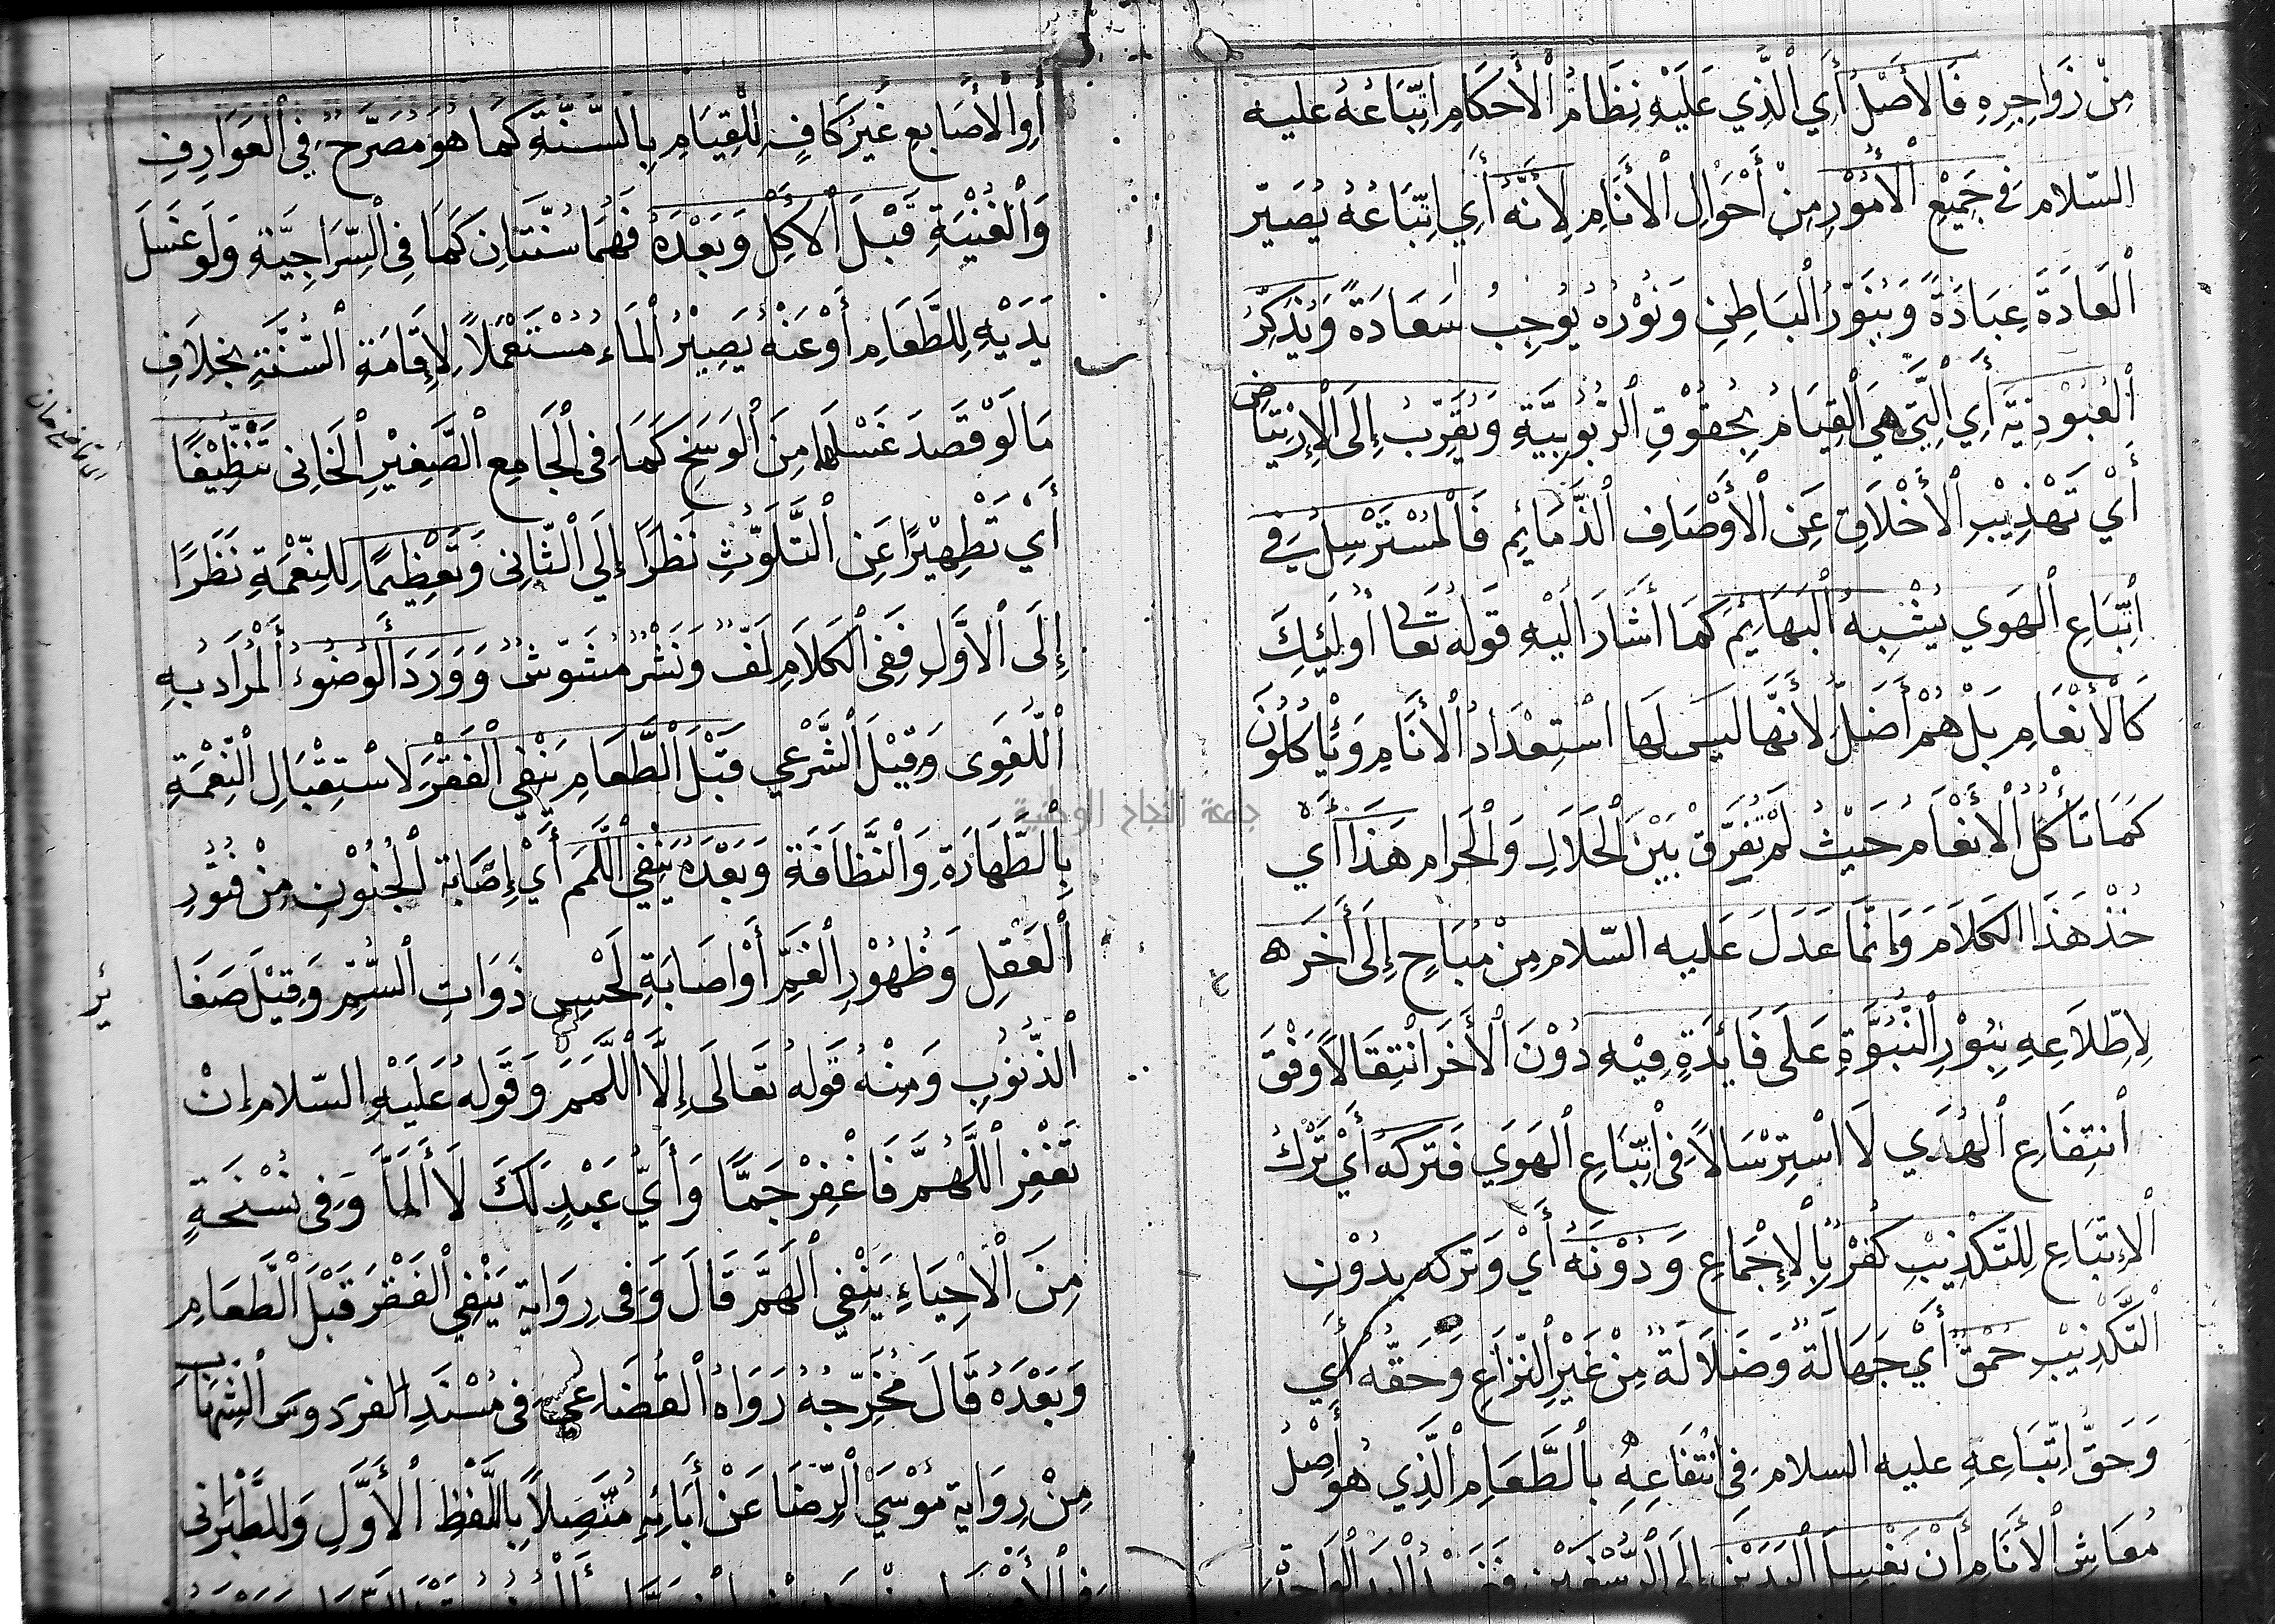 مِنْ زَوَاجِرِهِ فَالأَصْلُ أَيِ الَّذِي عَلَيْهِ نِظَامُ الْأَحْكَامِ اتِّبَاعُهُ عليه
السّلام فِي جَمِيْعِ الْأُمُوْرِ مِنْ أَحْوَالِ الْأَنَامِ لِأَنَّهُ أَيِ اتِّبَاعُهُ يُصَيِّر
الْعَادَةَ عِبَادَةً وَيُنَوِّرُ الْبَاطِنَ وَنُوْرُهُ يُوجِبُ سَعَادَةً وَيُذَكِّرُ
الْعُبُوْدِيَّةَ أَيِ الَّتِي هِيَ الْقِيَامُ بِحُقُوْقِ الرُّبُوْبِيَّةِ وَيُقَرِّبُ إِلَى الْاِرْتِيَاضِ
أَيْ تَهْذِيْبِ الْأَخْلَاقِ عَنِ الْأَوْصَافِ الذَّمَائِمِ فَالْمُسْتَرْسِلُ فِي
اتِّبَاعِ الْهَوَي يُشْبِهُ الْبَهَائِمَ كَمَا أَشَارَ اِلَيْهِ قَوْلُه تَعَا أُولَئِكَ
كَالْأَنْعَامِ بَلْ هُمْ أَضَلُّ لِأَنَّهَا لَيسَ لَهَا اسْتِعْدَادُ الْأَنَامِ وَيَأْكُلُوْنَ
كَمَا تَأْكُلُ الْأَنْعَامُ حَيْثُ لَمْ يُفَرِّقْ بَيْنَ الْحَلَالِ وَالْحَرام هَذَا أَيْ
خُذْ هَذَا الْكَلَامَ وَإِنَّمَا عَدَلَ عَليه السّلام مِنْ مُبَاحٍ إِلَى أَخَرَ
لِاطِّلَاعِهِ بِنُوْرِ النُّبُوَّةِ عَلَى فَائِدَةٍ فِيْهِ دُوْنَ الْأَخَرَ انْتِقَالًا وَفْقَ
انتِفَاعِ الْهُدَي لَا اسْتِرْسَالًا فِي اتِّبَاعِ الْهَوَي فَتَركه أَيْ تَرْكُ
الْاِتِّبَاعِ لِلتَّكْذِيْبِ كُفْرٌ بِالْإِجْمَاعِ وَدُوْنَهُ أَيْ وَتَركه بِدُوْنِ
التَّكْذِيْبِ حُمْقٌ أَيْ جَهَالَةٌ وَضَلَالَةٌ مِنْ غَيْرِ النِّزَاعِ وَحَقُّهُ أَي
وَحَقُّ اتِّبَاعِهِ عليه السلام فِي انْتِفَاعِهِ بِالطَّعَامِ الَّذِي هُوَ أَصْلُ
مُعَاشِ الْأَنَامِ أَنْ يَغْسِلَ الْيَدَيْنِ إِلَى الرُّسْغَيْنِ فَغَسْلُ الْيَدِ الْوَاحِدَةِ
أَوِ الْأَصَابِعِ غَيْرُ كَافٍ لِلْقِيَامِ بِالسُّنَّةِ كَمَا هُوَ مُصَرَّحٌ فِي الْعَوَارِفِ
وَالْغُنْيَةِ قَبْلَ الْأَكْلِ وَبَعْدَهُ فَهُمَا سُنَّتَانِ كَمَا فِي السِّرَاجِيَّةِ وَلَو غَسَلَ
يَدَيْهِ لِلطَّعَامِ أَوْ عَنْهُ يَصِيْرُ الْمَاءُ مُسْتَعْمَلًا لِإِقَامَةِ السُّنَّةِ بِخِلَافِ
مَا لَوْ قَصَدَ غَسْلَهما مِنَ الْوَسَخِ كَمَا فِي الْجَامِعِ الصَّغِيْرِ الْخَانِى تَنْظِيْفًا
أَيْ تَطْهِيْرًا عَنِ التَّلَوُّثِ نَظَرًا إِلَى الثَّانِى وَتَعْظِيمًا لِلنِّعْمَةِ نَظَرًا
إِلَى الْاَوَّلِ فَفِى الْكَلَامِ لَفٌّ وَنَشْرٌ مُشَوَّشٌ وَوَرَدَ الْوُضُوْءُ الْمُرَادُ بِهِ
اللُّغَوِى وَقِيْلَ الشَّرْعِي قَبْلَ الطَّعَامِ يَنْفِي الْفَقْرَ لِاسْتِقْبَالِ النِّعْمَةِ
بِالطَّهَارَةِ وَالنَّظَافَةِ وَبَعْدَهُ يَنْفِي اللَّمَمَ أَيْ إِصَابَةَ الْجُنُوْنِ مِنْ فُتُوْرِ
الْعَقْلِ وَظُهُوْرِ الْغَمِّ أَوْ اصَابَةِ لَحْسِ ذَوَاتِ السُّمِّ وَقِيْلَ صَغَا
الذُّنُوْبِ وَمِنْهُ قَوْلُه تَعَالَى إِلَّا اللَّمَمَ وَقَولُهُ عَلَيْهِ السّلام إِنْ
تَغْفِرِ اللَّهُمَّ فَاغْفِرْ جَمًّا وَأَيُّ عَبْدٍ لَكَ لَا أَلَمَّا وَفِى نُسْخَةٍ
مِنَ الْاِحْيَاءِ يَنْفِي الْهَمَّ قَالَ وَفِى رِوَايَةٍ يَنْفِي الْفَقْرَ قَبْلَ الطَّعَامِ
وَبَعْدَهُ قَالَ مُخَرِّجُهُ رَوَاهُ الْقُضَاعِي فِى مُسْنَدِ الفردوس الشِّهَابِ
مِنْ رِوَايَةِ مُوْسَي الرِّضَا عَنْ أَبَائِهِ مُتَّصِلًا بِاللَّفْظِ الْأَوَّلِ وَلِلطَّبْرَانِى
ئر
جامعة النجاح الوطنية